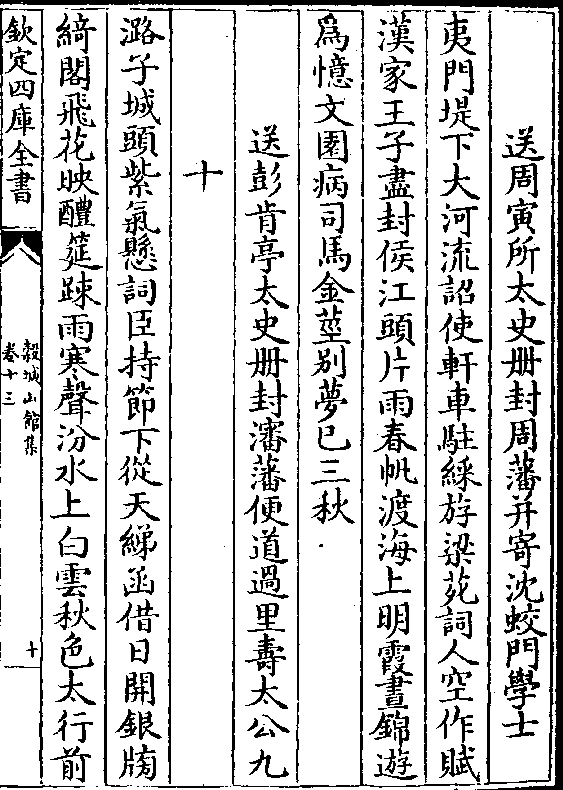 送周寅所太史册封周藩并寄沈蛟門學士
夷門堤下大河流詔使軒車駐綵斿梁苑詞人空作賦
漢家王子盡封侯江頭片雨春帆渡海上明霞晝錦遊
爲憶文園病司馬金莖别夢已三秋
送彭肯亭太史册封瀋藩便道過里壽太公九
十
潞子城頭紫氣懸詞臣持節下從天綈函借日開銀牓
綺閣飛花映醴筵踈雨寒聲汾水上白雲秋色太行前
欽定四庫全書
穀城山館集
卷十三
十